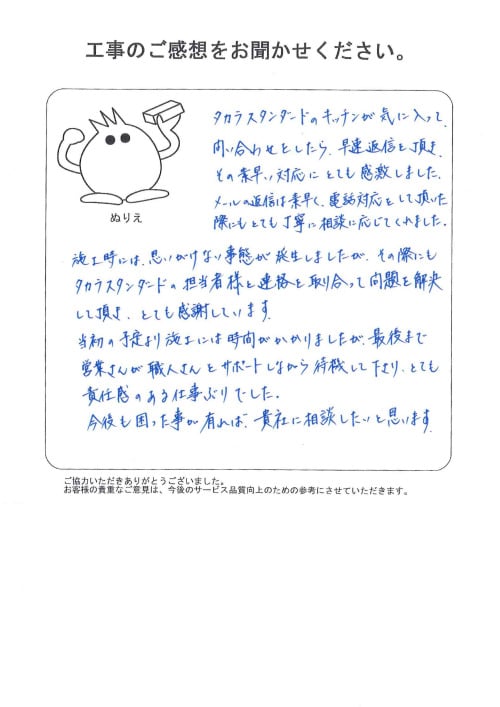 工事のご感想をお聞かせください。
タカラスタンダードのキッチンが気に入って、
問い合わせをしたら、早速返信を頂き、
その素早い対応にとても感激しました。
メールの返信は素早く、電話対応をして頂いた
際にもとても丁寧に相談に応じてくれました。
ぬりえ
施工時には、思いがけない事態が発生しましたが、その際にも
タカラスタンダードの担当者様と連絡を取り合って問題を解決
して頂き、とても感謝しています。
当初の予定より施工には時間がかかりましたが、最後まで
営業さんが職人さんとサポートしながら待機して下さり、とても
責任感のある仕事ぶりでした。
今後も困った事が有れば、貴社に相談したいと思います。
ご協力いただきありがとうございました。
お客様の貴重なご意見は、今後のサービス品質向上のための参考にさせていただきます。